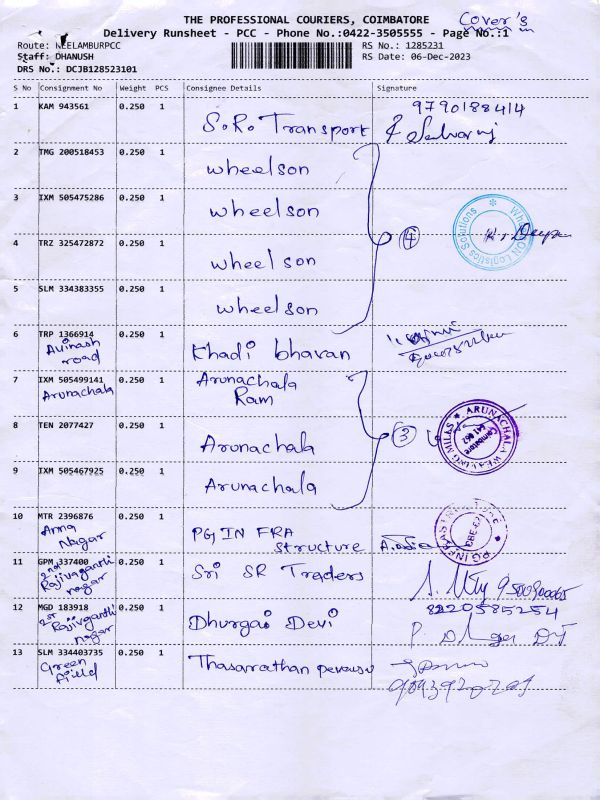 THE PROFESSIONAL COURIERS, COIMBATORE
Cover's
Delivery Runsheet - PCC - Phone No.:0422-3505555 - Page No.:1
Route: NEELAMBURPCC RS No.: 1285231
Staff: DHANUSH RS Date: 06-Dec-2023
DRS No.: DCJB128523101
S No Consignment No Weight PCS Consignee Details Signature
1 KAM 943561 0.250 1 S.R. Transport 9790188414
2 TMG 200518453 0.250 1 wheelson
3 IXM 505475286 0.250 1 wheelson
4 TRZ 325472872 0.250 1 wheelson
4
Wheelson Logistics Solutions
5 SLM 334383355 0.250 1 wheelson
6 TRP 1366914 0.250 1 Khadi bhavan
Avinash
road
7 IXM 505499141 0.250 1 Arunachala
Ram
Arunachala
8 TEN 2077427 0.250 1 Arunachala
3
ARUNACHALA WEAVING MILLS
Coimbatore
9 IXM 505467925 0.250 1 Arunachala
10 MTR 2396876 0.250 1 PG IN FRA
structure
Anna
Nagar
11 GPM 337400 0.250 1 Sri SR Traders
2nd
Rajivagandhi
nagar
12 MGD 183918 0.250 1 Dhurgai Devi 8220585254
Rajivgandhi
nagar
13 SLM 334403735 0.250 1 Thasarathan
Green
field